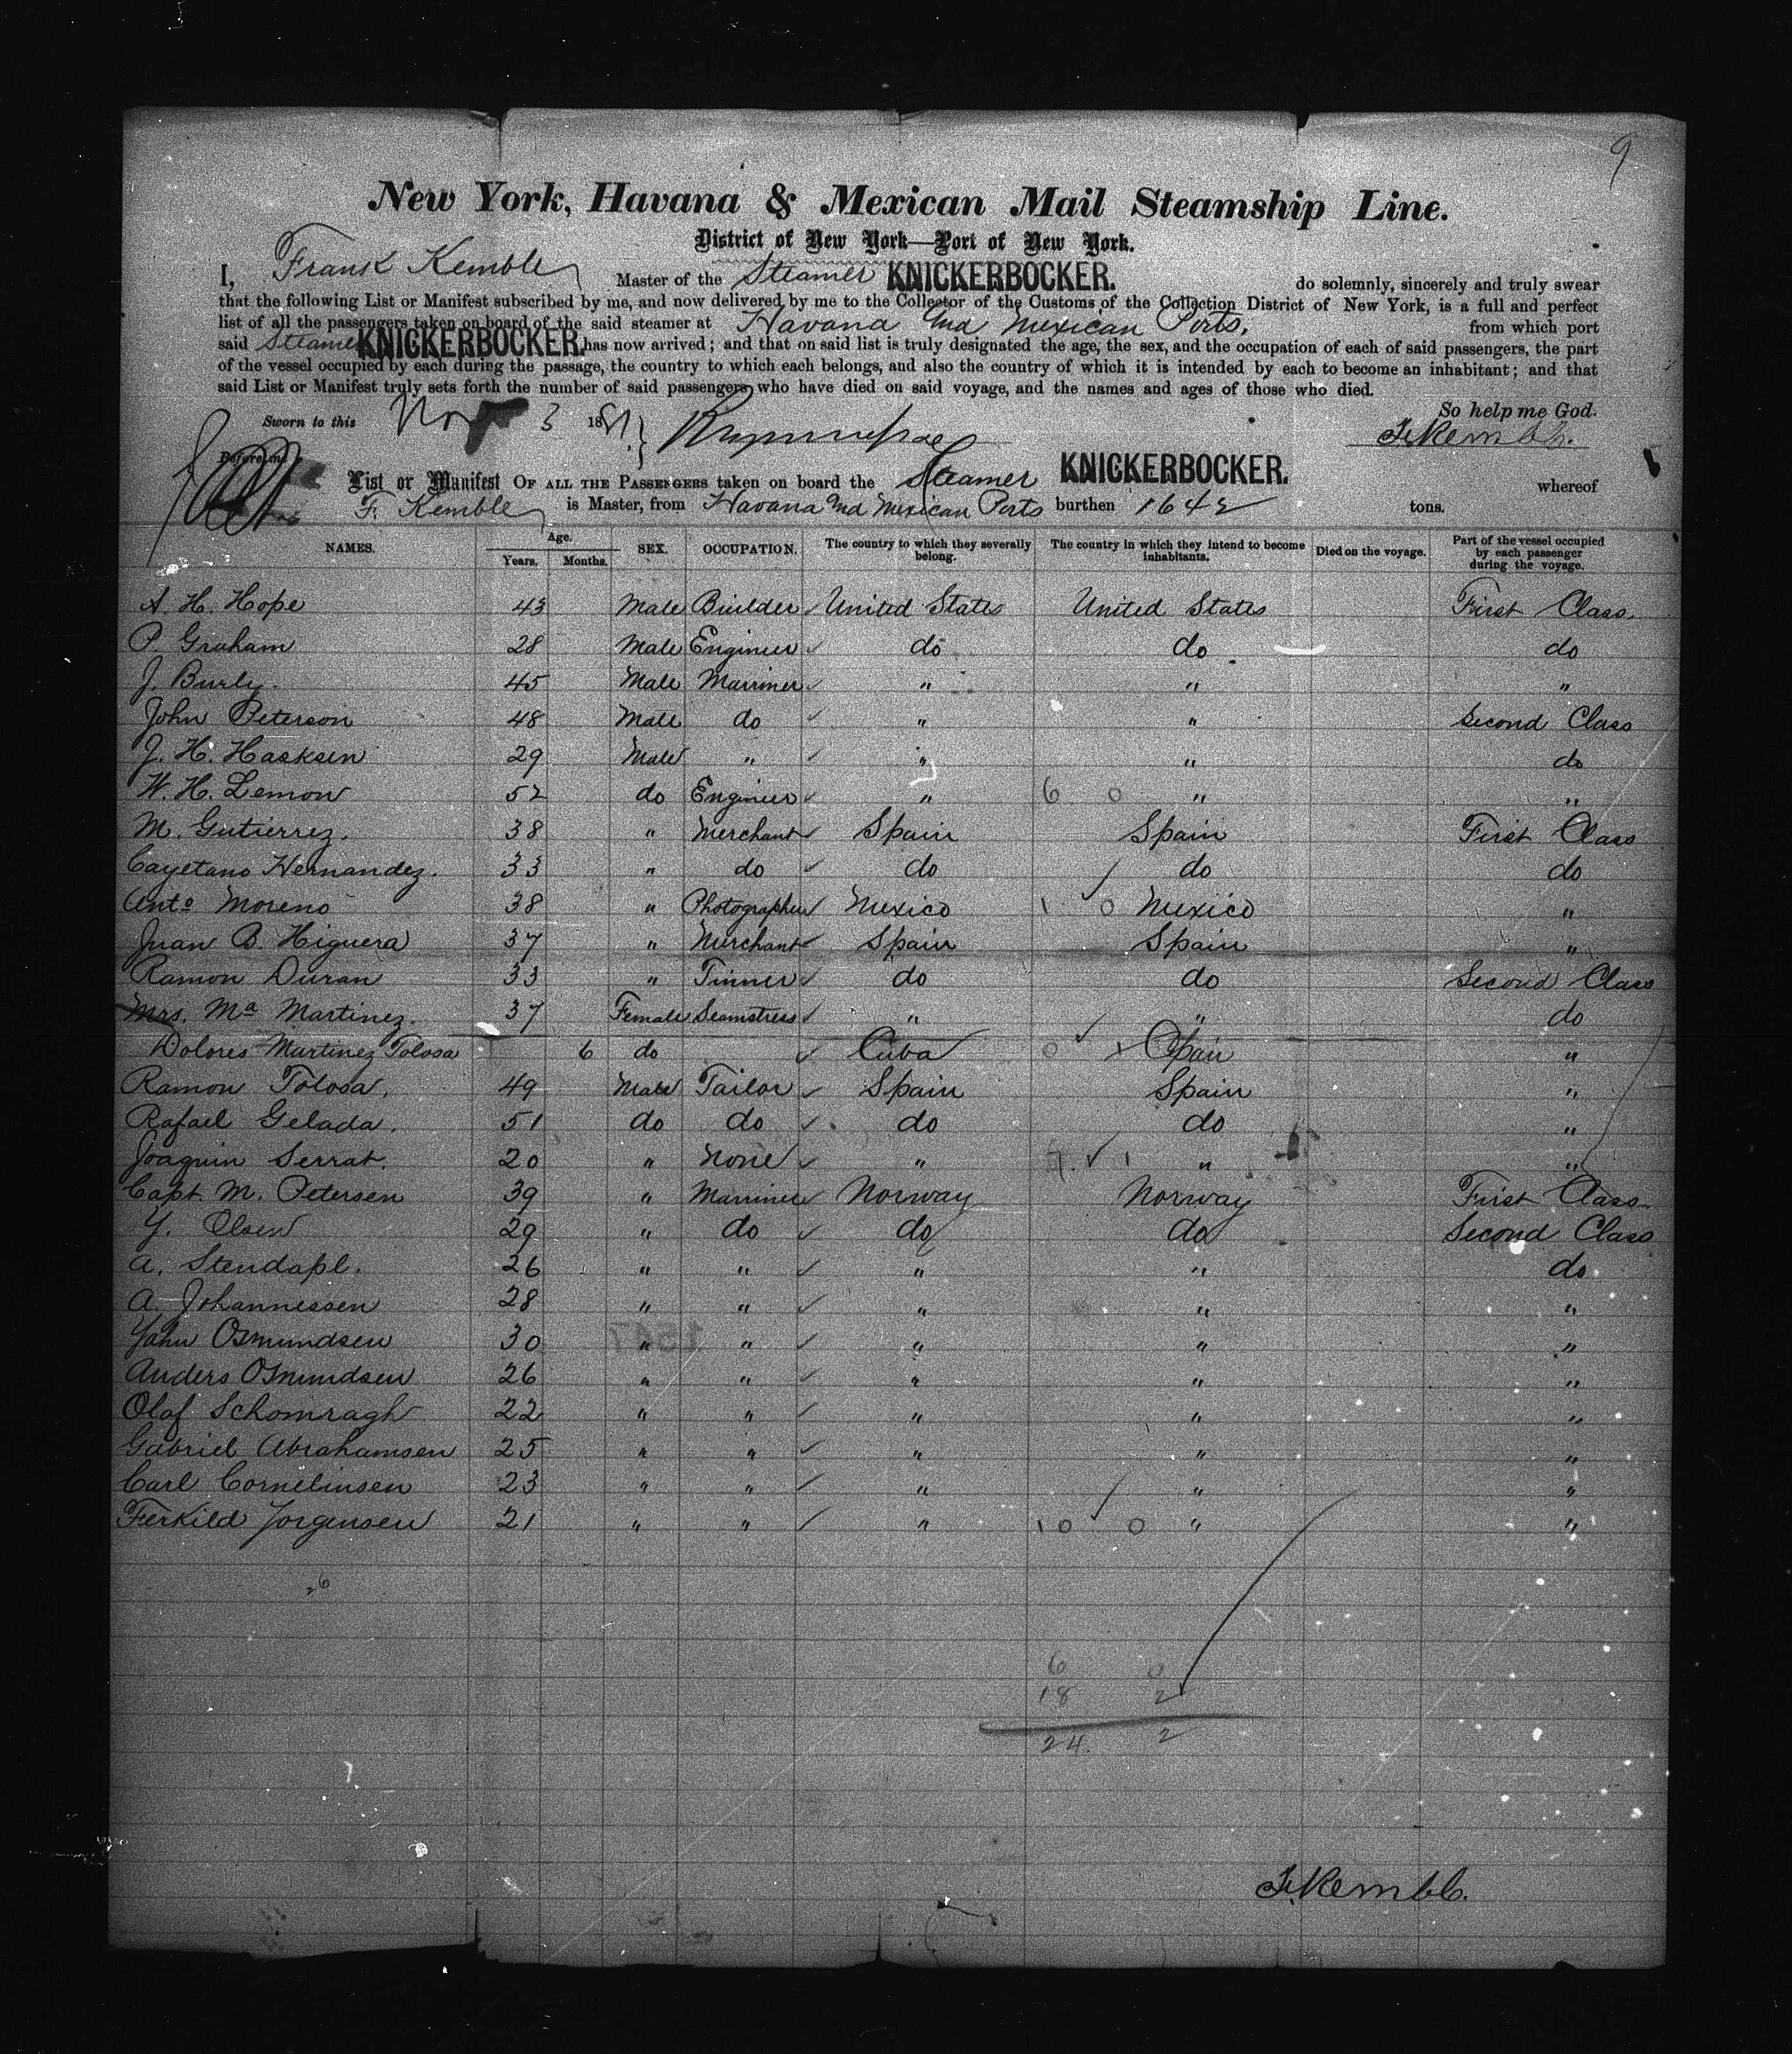 9
New York, Havana & Mexican Mail Steamship Line.
District of New York—Port of New York.
I, Frank Kemble Master of the Steamer KNICKERBOCKER. do solemnly, sincerely and truly swear
that the following List or Manifest subscribed by me, and now delivered by me to the Collector of the Customs of the Collection District of New York, is a full and perfect
list of all the passengers taken on board of the said steamer at Havana and Mexican Ports, from which port
said Steamer KNICKERBOCKER. has now arrived; and that on said list is truly designated the age, the sex, and the occupation of each of said passengers, the part
of the vessel occupied by each during the passage, the country to which each belongs, and also the country of which it is intended by each to become an inhabitant; and that
said List or Manifest truly sets forth the number of said passengers who have died on said voyage, and the names and ages of those who died.
So help me God.
Sworn to this Nov 3 1881 F. Kemble.
Before me
List or Manifest OF ALL THE PASSENGERS taken on board the Steamer KNICKERBOCKER. whereof
F. Kemble is Master, from Havana and Mexican Ports burthen 1642 tons.
NAMES. Age. Years. Months. SEX. OCCUPATION. The country to which they severally belong. The country in which they intend to become inhabitants. Died on the voyage. Part of the vessel occupied by each passenger during the voyage.
A. H. Hope 43 Male Builder United States United States First Class
P. Graham 28 Male Engineer do do do
J. Burly. 45 Male Marriner " " "
John Peterson 48 Male do " " Second Class
J. H. Hasksen 29 Male " " " do
W. H. Lemon 52 do Engineer " 6 0 " "
M. Gutierrez. 38 " Merchant Spain Spain First Class
Cayetano Hernandez. 33 " do do do do
Anto Moreno 38 " Photographer Mexico 1 0 Mexico "
Juan B. Higuera 37 " Merchant Spain Spain "
Ramon Duran 33 " Tinner do do Second Class
Mrs. Ma Martinez. 37 Female Seamstress " " do
Dolores Martinez Tolosa 6 do Cuba 0 x Spain "
Ramon Tolosa. 49 Male Tailor Spain Spain "
Rafael Gelada. 51 do do do do "
Joaquin Serrat. 20 " None " 1 " "
Capt. M. Petersen 39 " Marriner Norway Norway First Class
Y. Olsen 29 " do do do Second Class
A. Stendapl. 26 " " " " do
A. Johannessen 28 " " " " "
John Osmundsen 30 " " " " "
Anders Osmundsen 26 " " " " "
Olaf Schomragh 22 " " " " "
Gabriel Abrahamsen 25 " " " " "
Carl Cornelinsen 23 " " " " "
Ferkild Jorgensen 21 " " " 10 0 " "
6 0
18 2
24. 2
F. Kemble.